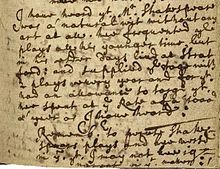 I have heard yt Mr. Shakespeare
was a natural wit without any
art at all. hee frequented ye
plays all his younger time, but
in his elder days lived at Strat
ford: and supplied ye stage with
2 plays every year, and for yt
had an allowance so large, yt
hee spent att ye Rate of a 1000l
a year as I have heard:
Remember to peruse Shake-
spears plays and bee versd
in ym yt I may not bee ig-
norant in yt matter: